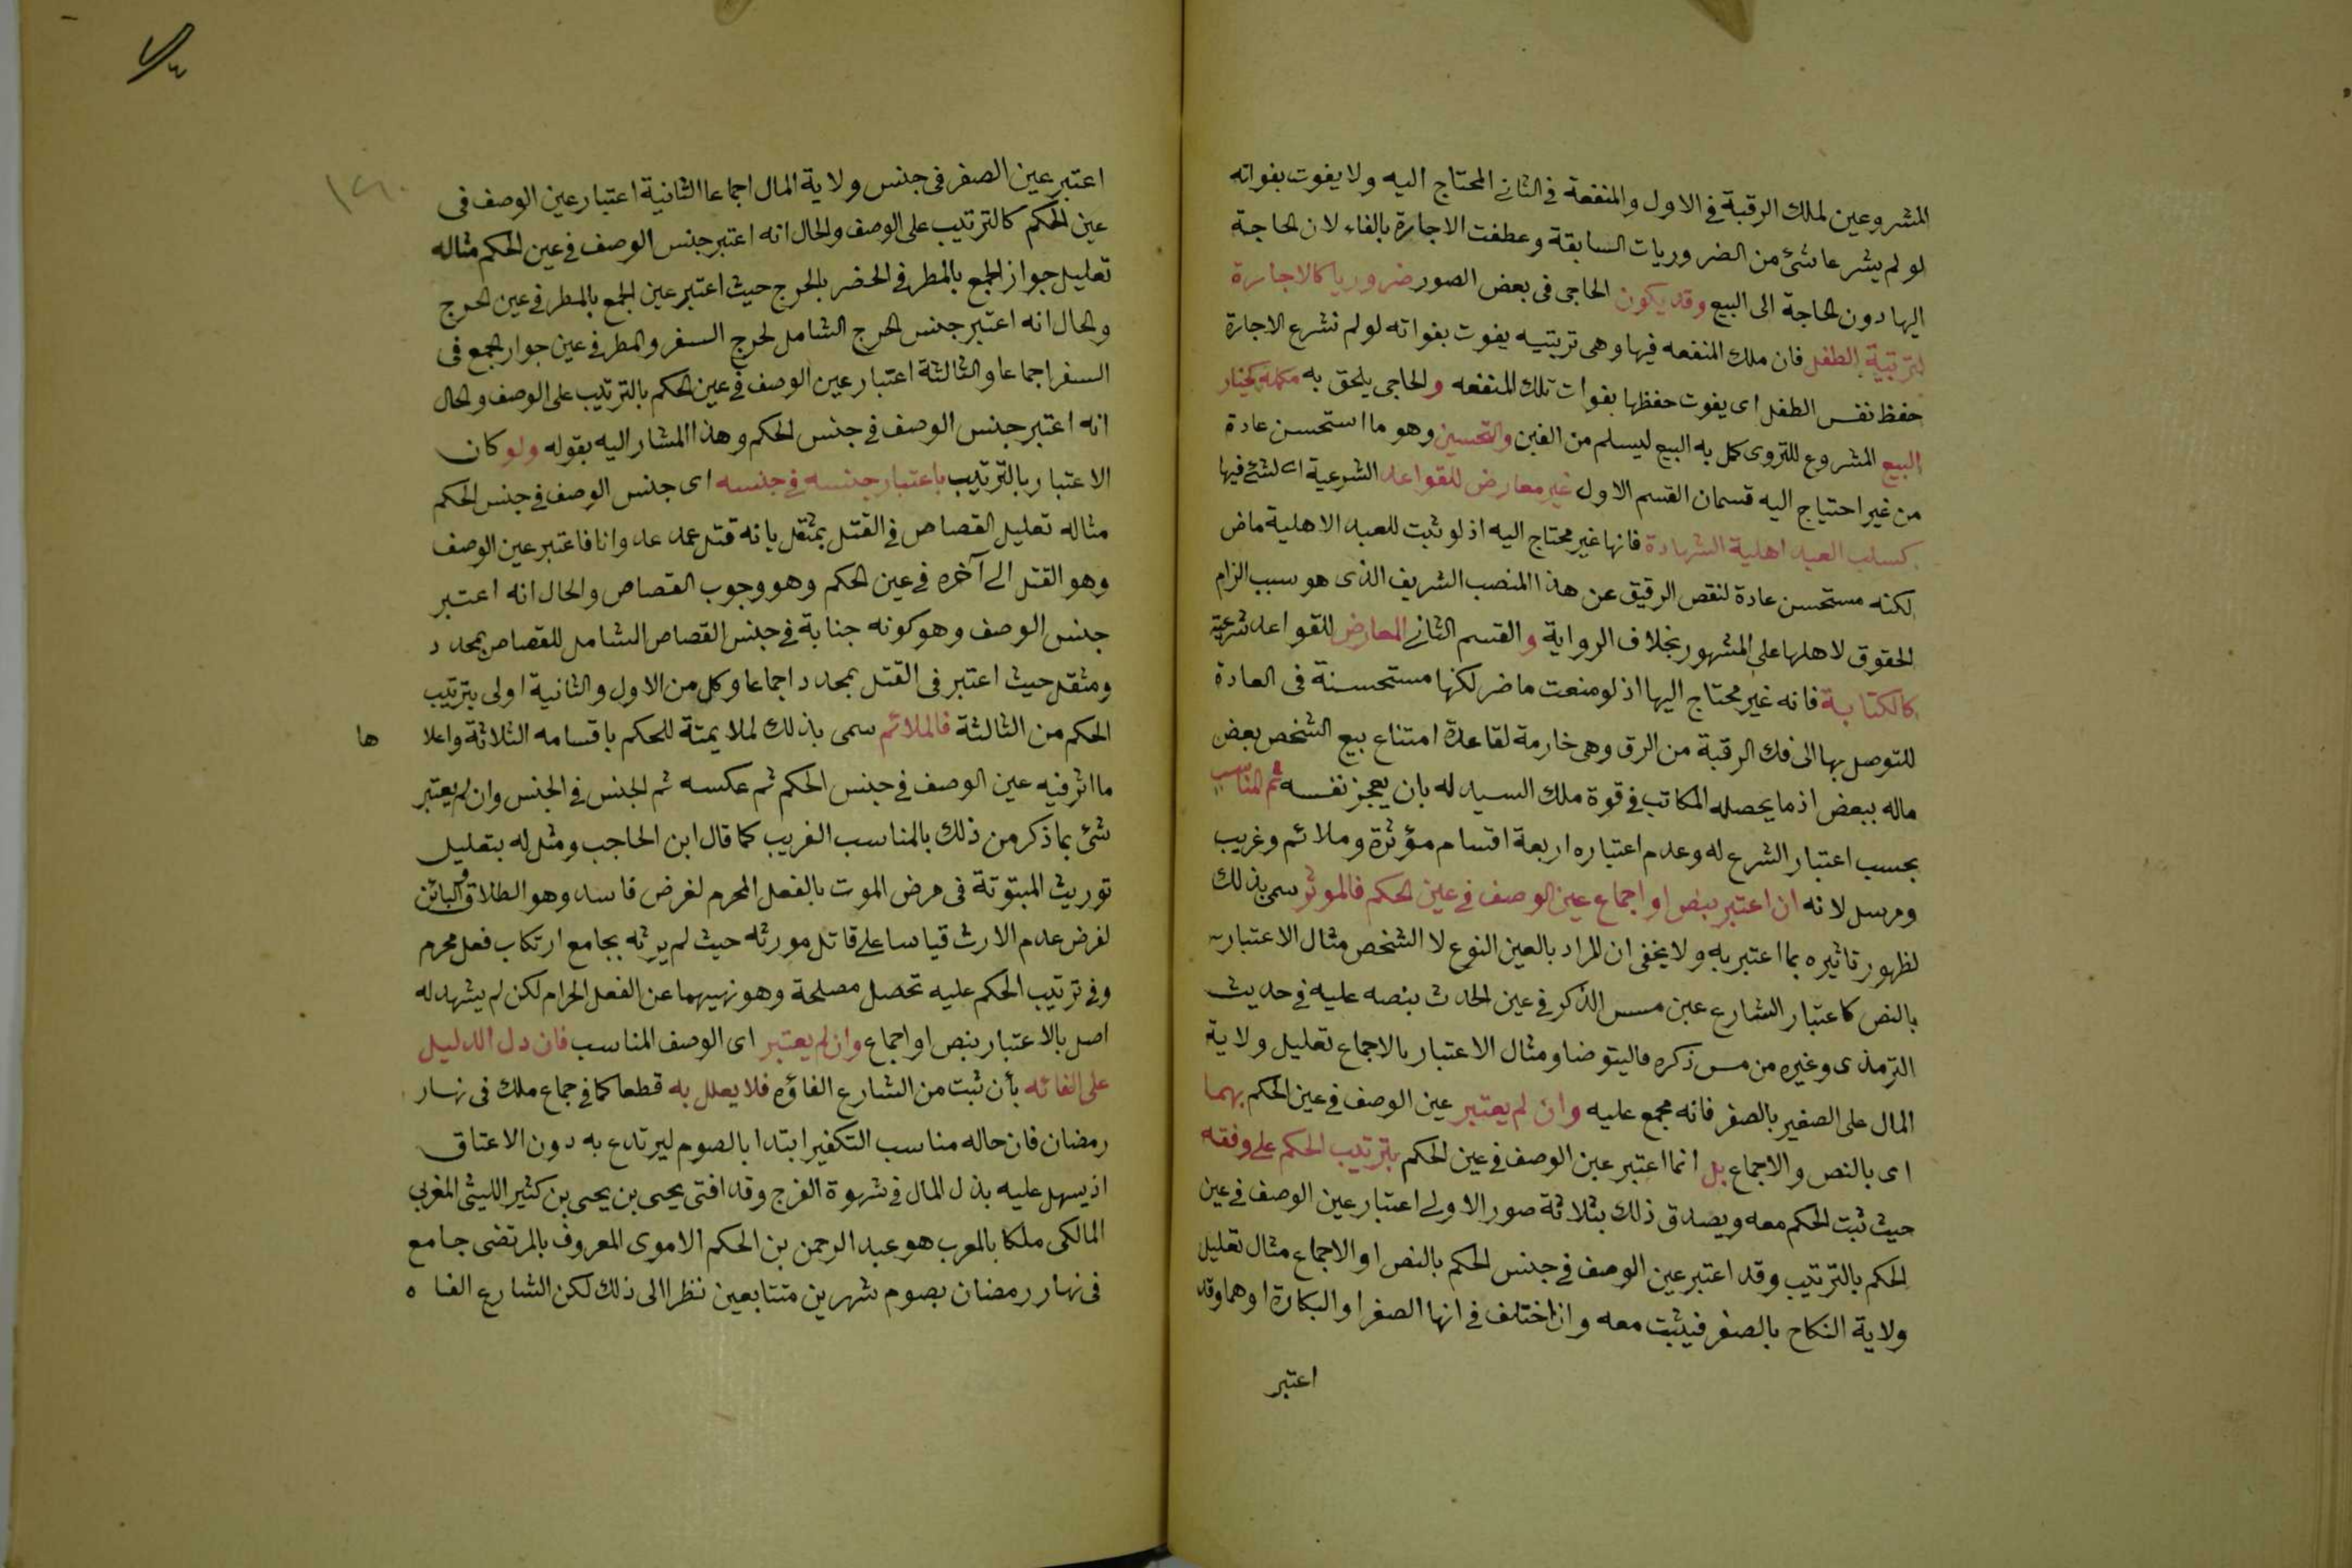 المشروعين لملك الرقبة في الاول والمنفعة في الثاني المحتاج اليه ولا يفوت بفواته
لو لم يشرعا شئ من الضروريات السابقة وعطفت الاجارة بالفاء لان لحاجة
اليها دون لحاجة الى البيع وقد يكون الحاجى فى بعض الصور ضروريا كالاجارة
لتربية الطفل فان ملك المنفعه فيها وهى تربتيه يفوت بفواته لو لم تشرع الاجارة
حفظ نفس الطفل اى يفوت حفظها بفوات تلك المنفعه والحاجى يلحق به مكمله كخيار
البيع المشروع للتروى كمل به البيع ليسلم من الغبن والتحسين وهو ما استحسن عادة
من غير احتياج اليه قسمان القسم الاول غير معارض للقواعد الشرعية اى لشئ فيها
كسلب العبد اهلية الشهادة فانها غير محتاج اليه اذ لو ثبت للعبد الاهلية ماضر
لكنه مستحسن عادة لنقص الرقيق عن هذا المنصب الشريف الذى هو سبب الزام
الحقوق لاهلها على المشهور بخلاف الرواية والقسم الثانى المعارض للقواعد شرعية
كالكتابة فانه غير محتاج اليها اذ لو منعت ماضر لكنها مستحسنة فى العادة
للتوصل بها الى فك الرقبة من الرق وهى خارمة لقاعدة امتناع بيع الشخص بعض
ماله ببعض اذ ما يحصله المكاتب فى قوة ملك السيد له بان يعجز نفسه ثم المناسب
بحسب اعتبار الشرع له وعدم اعتباره اربعة اقسام مؤثرة وملائم وغريب
ومرسل لانه ان اعتبر بنص او اجماع عين الوصف فى عين الحكم فالموثر سمى بذلك
لظهور تاثيره بما اعتبر به ولا يخفى ان المراد بالعين النوع لا الشخص مثال الاعتبار
بالنص كاعتبار الشارع عين مسس الذكر فى عين الحدث بنصه عليه فى حديث
الترمذى وغيره من مس ذكره فاليتوضا ومثال الاعتبار بالاجماع تعليل ولاية
المال على الصغير بالصغر فانه مجمع عليه وان لم يعتبر عين الوصف فى عين الحكم بهما
اى بالنص والاجماع بل انما اعتبر عين الوصف فى عين الحكم بترتيب الحكم على وفقه
حيث ثبت الحكم معه ويصدق ذلك بثلاثة صور الاولى اعتبار عين الوصف فى عين
الحكم بالترتيب وقد اعتبر عين الوصف فى جنس الحكم بالنص او الاجماع مثال تعليل
ولاية النكاح بالصغر فيثبت معه وان اختلف فى انها الصغر او البكارة او هما وقد
اعتبر
١٢٦٠
اعتبر عين الصغر فى جنس ولاية المال اجماعا الثانية اعتبار عين الوصف فى
عين الحكم كالترتيب على الوصف والحال انه اعتبر جنس الوصف فى عين الحكم مثاله
تعليل جواز الجمع بالمطر فى الحضر بالحرج حيث اعتبر عين الجمع بالمطر فى عين الحرج
ولحال انه اعتبر جنس الحرج الشامل لحرج السفر والمطر فى عين جواز الجمع فى
السفر اجماعا والثالثة اعتبار عين الوصف فى عين الحكم بالترتيب على الوصف ولحال
انه اعتبر جنس الوصف فى جنس الحكم وهذا المشار اليه بقوله ولو كان
الاعتبار بالترتيب باعتبار جنسه فى جنسه اى جنس الوصف فى جنس الحكم
مثاله تعليل القصاص فى القتل بمثقل بانه قتل عمد عدوانا فاعتبر عين الوصف
وهو القتل الى آخره فى عين الحكم وهو وجوب القصاص والحال انه اعتبر
جنس الوصف وهو كونه جناية فى جنس القصاص الشامل للقصاص بمحدد
ومثقل حيث اعتبر فى القتل بمحدد اجماعا وكل من الاول والثانية اولى بترتيب
الحكم من الثالثة فالملائم سمى بذلك لملايمتة للحكم باقسامه الثلاثة واعلا ها
ما اثر فيه عين الوصف فى جنس الحكم ثم عكسه ثم الجنس فى الجنس وان لم يعتبر
شئ بما ذكر من ذلك بالمناسب الغريب كما قال ابن الحاجب ومثل له بتعليل
توريث المبتوتة فى مرض الموت بالفعل المحرم لغرض فاسد وهو الطلاق البائن
لغرض عدم الارث قياسا على قاتل مورثه حيث لم يرثه بجامع ارتكاب فعل محرم
وفى ترتيب الحكم عليه تحصل مصلحة وهو نهيهما عن الفعل الحرام لكن لم يشهد له
اصل بالاعتبار بنص او اجماع وان لم يعتبر اى الوصف المناسب فان دل الدليل
على الغائه بأن ثبت من الشارع الغاؤه فلا يعلل به قطعا كما فى جماع ملك فى نهار
رمضان فان حاله مناسب التكفير ابتدا بالصوم ليرتدع به دون الاعتاق
اذ يسهل عليه بذل المال فى شهوة الفرج وقد افتى يحيى بن يحيى بن كثير الليثى المغربى
المالكى ملكا بالمعرب هو عبد الرحمن بن الحكم الاموى المعروف بالمرتضى جامع
فى نهار رمضان بصوم شهرين متتابعين نظرا الى ذلك لكن الشارع الغا ه